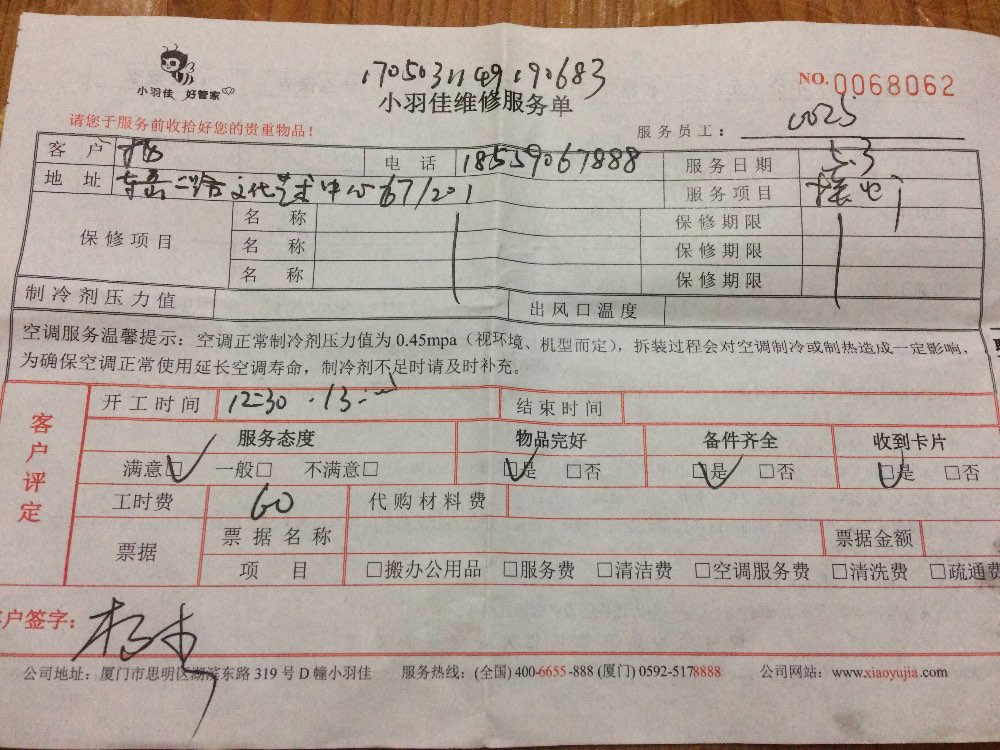 小羽佳 好管家
1705031149190683
小羽佳维修服务单
NO.0068062
请您于服务前收拾好您的贵重物品！
服务员工： 0025
客户 杨 电话 18559067888 服务日期 5.3
地址 文化艺术中心67/201 服务项目
保修项目 名称 保修期限
名称 保修期限
名称 保修期限
制冷剂压力值 出风口温度
空调服务温馨提示：空调正常制冷剂压力值为 0.45mpa（视环境、机型而定），拆装过程会对空调制冷或制热造成一定影响，
为确保空调正常使用延长空调寿命，制冷剂不足时请及时补充。
客户评定
开工时间 12=30 . 13 结束时间
服务态度 物品完好 备件齐全 收到卡片
满意□ 一般□ 不满意□ □是 □否 □是 □否 □是 □否
工时费 60 代购材料费
票据 票据名称 票据金额
项目 □搬办公用品 □服务费 □清洁费 □空调服务费 □清洗费 □疏通费
客户签字：
公司地址：厦门市思明区湖滨东路 319 号 D 幢小羽佳 服务热线：(全国) 400-6655-888 (厦门) 0592-5178888 公司网站：www.xiaoyujia.com